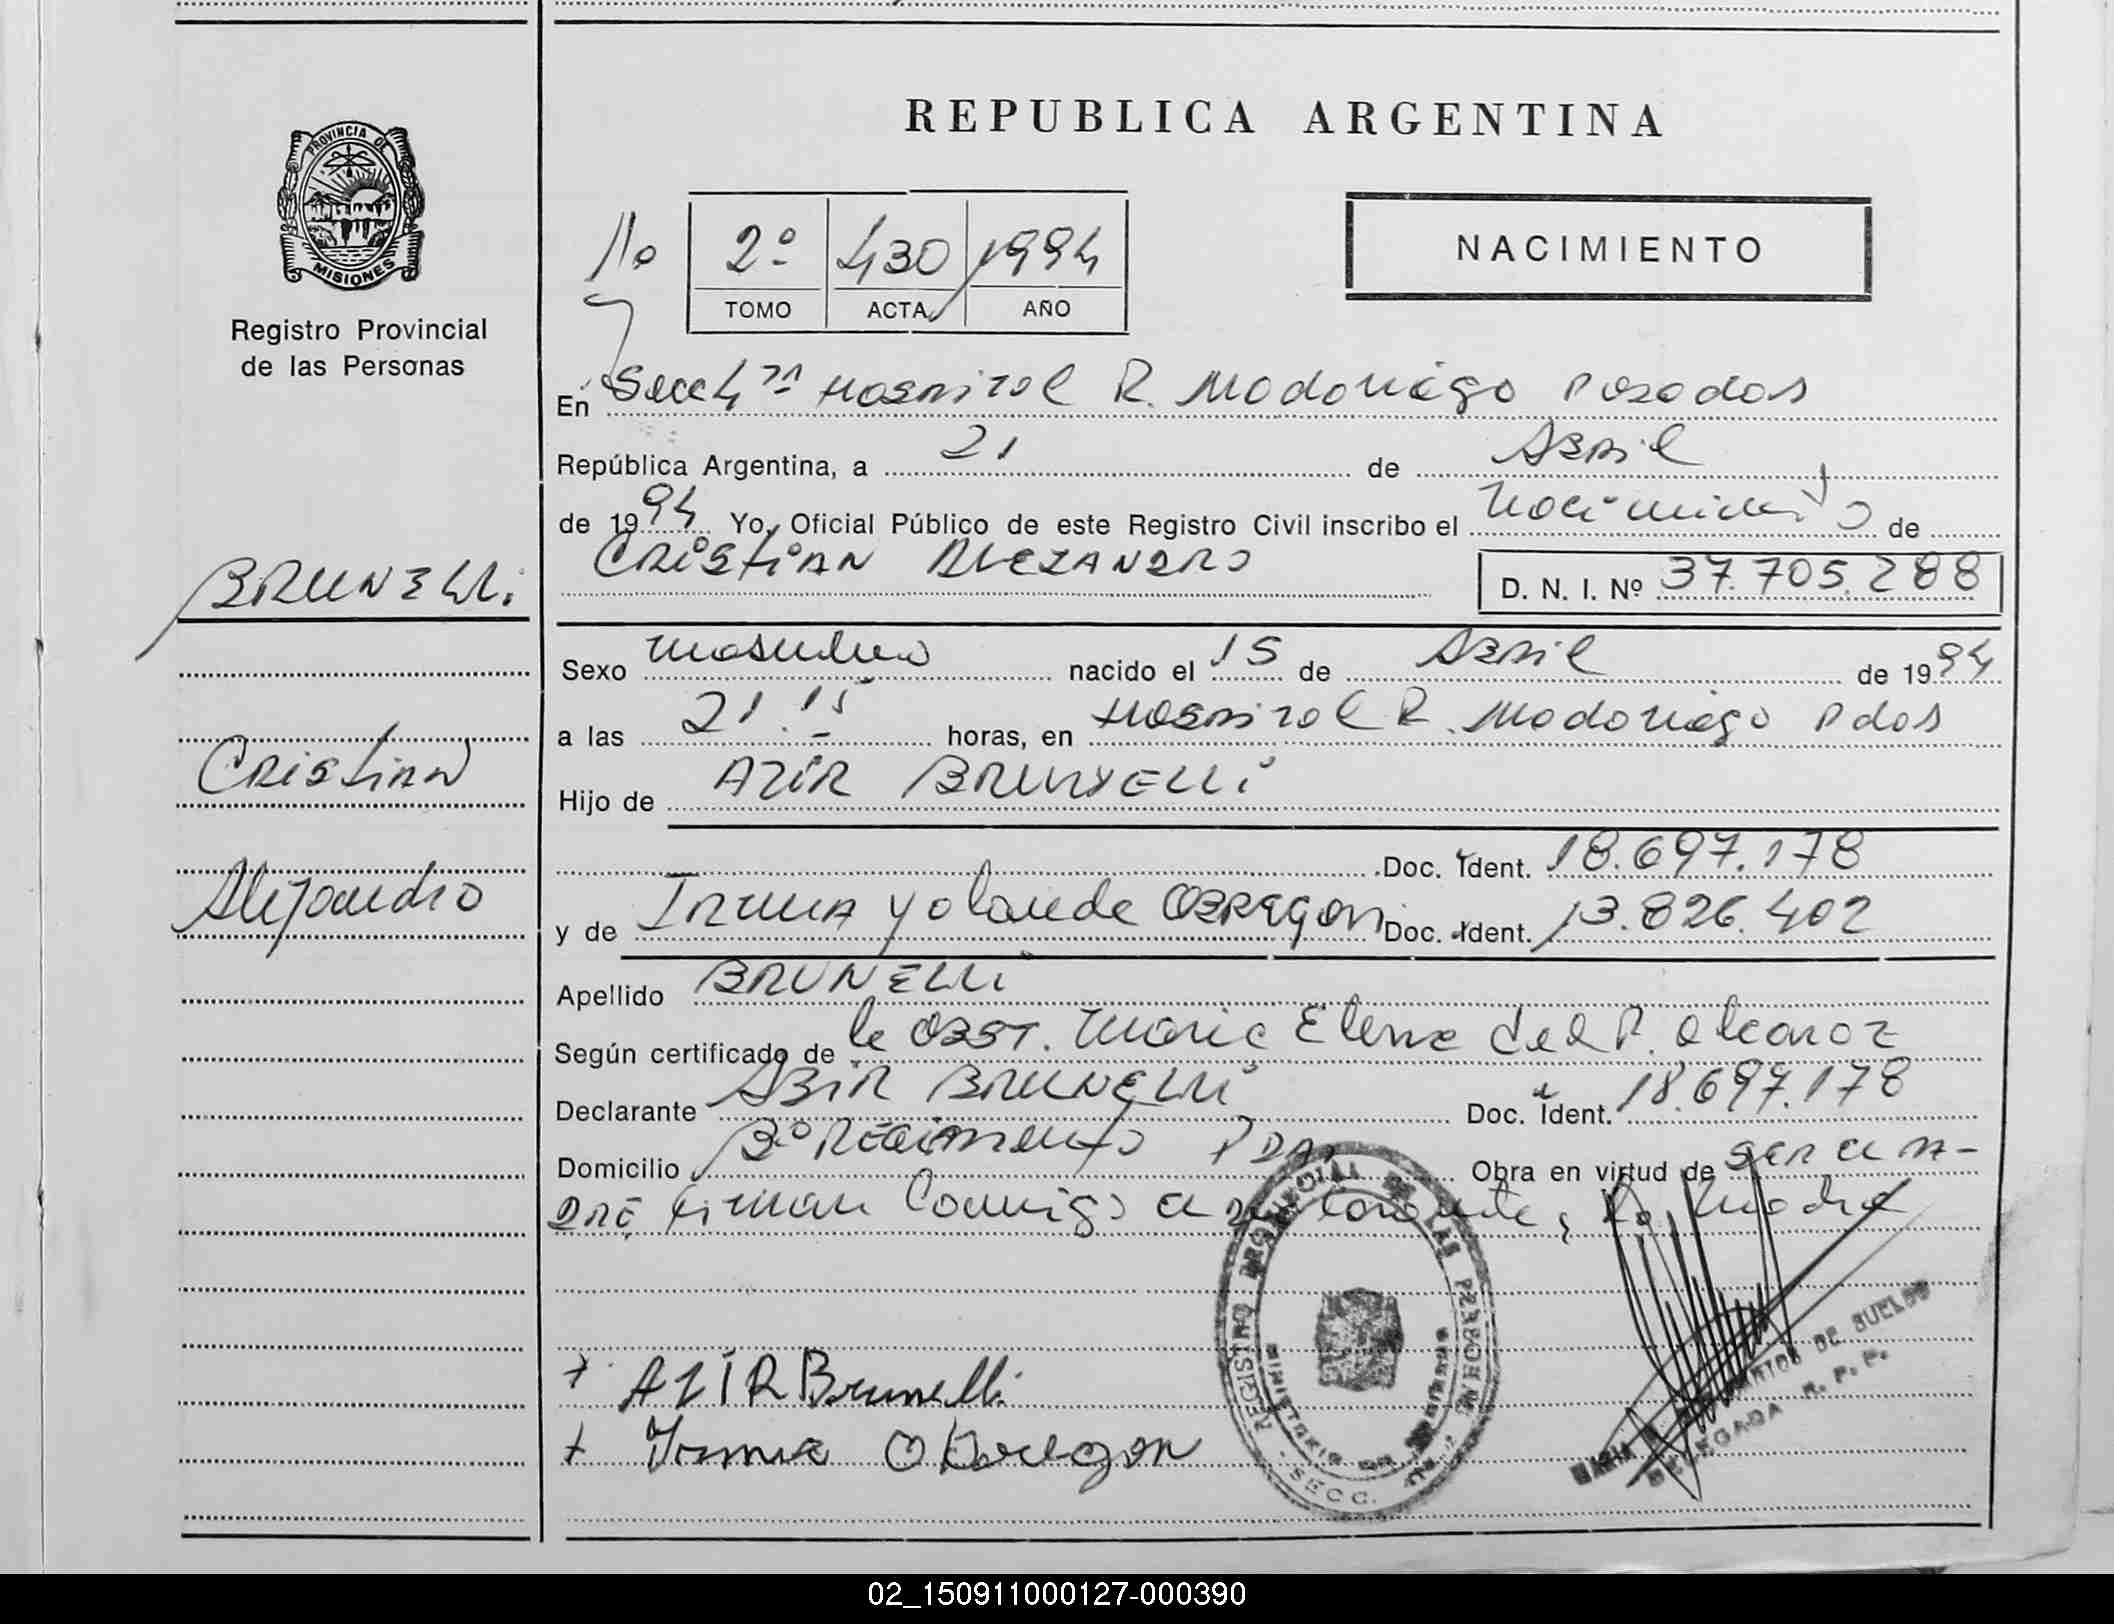 REPUBLICA ARGENTINA
PROVINCIA DE MISIONES
Registro Provincial
de las Personas
NACIMIENTO
2º 430 1994
TOMO ACTA AÑO
En Secc 4ª Hospital R. Madariaga Posadas
República Argentina, a 21 de Abril
de 1994 Yo, Oficial Público de este Registro Civil inscribo el Nacimiento de
CRISTIAN ALEJANDRO
D. N. I. Nº 37.705.288
BRUNELLI
Cristian
Alejandro
Sexo masculino nacido el 15 de Abril de 1994
a las 21.15 horas, en Hospital R. Madariaga Pdas
Hijo de AZIR BRUNELLI
Doc. Ident. 18.697.178
y de IRMA Yolanda OBREGON Doc. Ident. 13.826.402
Apellido BRUNELLI
Según certificado de la OBST. Maria Elena del R. Alcaraz
Declarante AZIR BRUNELLI Doc. Ident. 18.697.178
Domicilio Bº Regimiento PDAS Obra en virtud de ser el PA-
DRE, firman conmigo el declarante, la madre
AZIR Brunelli
Irma Obregon
REGISTRO PROVINCIAL DE LAS PERSONAS
MINISTERIO DE GOBIERNO
SECC.
MARIA DE SUELDO
DELEGADA R. P. P.
02_150911000127-000390